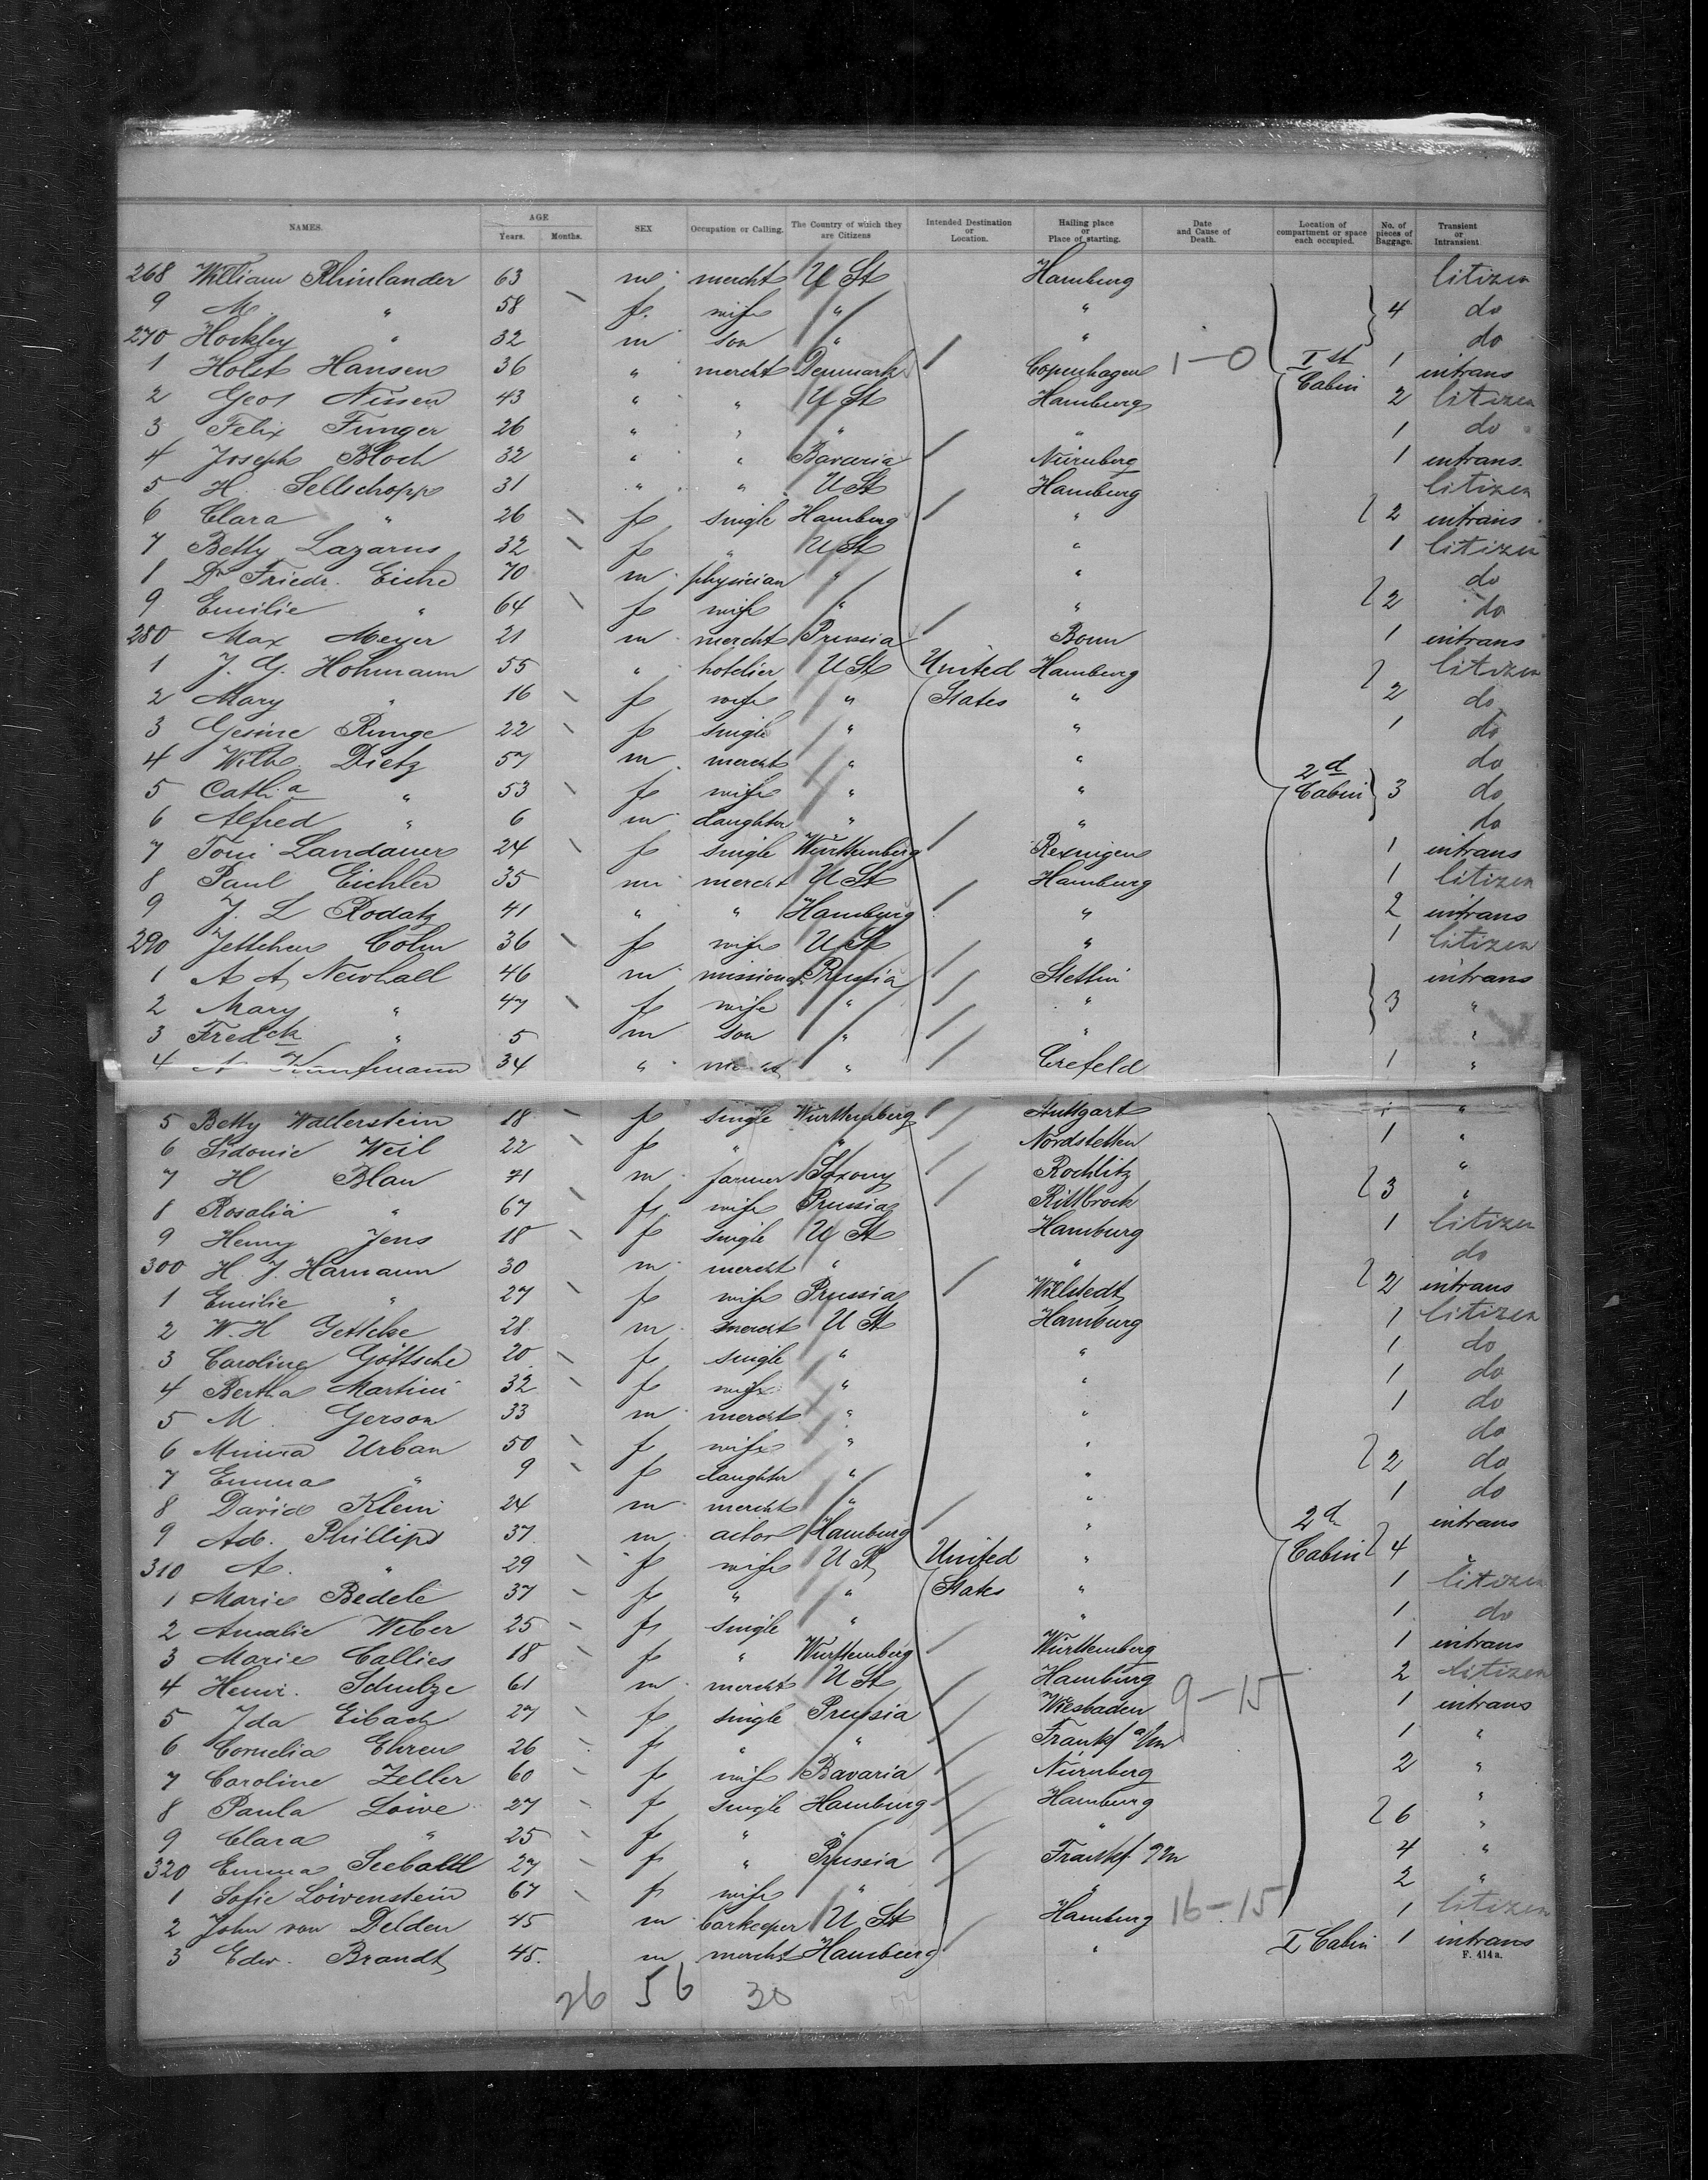 NAMES. AGE Years. Months. SEX Occupation or Calling. The Country of which they are Citizens Intended Destination or Location. Hailing place or Place of starting. Date and Cause of Death. Location of compartment or space each occupied. No. of pieces of Baggage. Transient or Intransient.
268 William Rhinlander 63 m mercht U St Hamburg Citizen
9 M. " 58 f. wife " " 4 do
270 Hockley " 32 m son " " do
1 Holst Hansen 36 " mercht Denmark Copenhagen 1-0 Ist 1 intrans
2 Geos Nissen 43 " " U St Hamburg Cabin 2 Citizen
3 Felix Funger 26 " " " " 1 do
4 Joseph Bloch 32 " " Bavaria Nürnberg 1 intrans
5 H. Sellschopp 31 " " U St Hamburg Citizen
6 Clara " 26 f single Hamburg " 2 intrans
7 Betty Lazarus 32 f " U St " 1 Citizen
8 Dr Friedr. Eiche 70 m physician " " do
9 Emilie " 64 f wife " " 2 do
280 Max Meyer 21 m mercht Prussia Bonn 1 intrans
1 J. G. Hohmann 55 " hotelier U St United Hamburg Citizen
2 Mary " 16 f wife " States " 2 do
3 Gesine Runge 22 f single " " 1 do
4 Wilh. Dietz 57 m mercht " " 2d do
5 Cathia " 53 f wife " " Cabin 3 do
6 Alfred " 6 m daughter " " do
7 Toni Landauer 24 f single Württemberg Rexingen 1 intrans
8 Paul Eichler 35 m mercht U St Hamburg 1 Citizen
9 J. L Rodatz 41 " " Hamburg " 2 intrans
290 Jettchen Cohn 36 f wife U St " 1 Citizen
1 A A Newhall 46 m mission Prussia Stettin intrans
2 Mary " 47 f wife " " 3 "
3 Fredck " 5 m son " " "
4 A Kaufmann 34 " mercht " Crefeld 1 "
5 Betty Wallerstein 18 f single Württemberg Stuttgart 1 "
6 Sidonie Weil 22 f " " Nordstetten 1 "
7 H Blau 71 m farmer Saxony Rochlitz 3 "
8 Rosalia " 67 f wife Prussia Rittbrock "
9 Henny Jens 18 f single U St Hamburg 1 Citizen
300 H. J. Harmann 30 m mercht " " do
1 Emilie " 27 f wife Prussia Willstedt 2 intrans
2 W. H Gettcke 28 m mercht U St Hamburg 1 Citizen
3 Caroline Göttsche 20 f single " " 1 do
4 Bertha Martini 32 f wife " " 1 do
5 M. Gerson 33 m mercht " " 1 do
6 Minna Urban 50 f wife " " do
7 Emma " 9 f daughter " " 2 do
8 David Klein 24 m mercht " " 1 do
9 Ad. Phillips 37 m actor Hamburg " 2d intrans
310 A. " 29 f wife U St United " Cabin 4 "
1 Marie Bedele 37 f " " States " 1 Citizen
2 Amalie Weber 25 f single " " 1 do
3 Marie Callies 18 f " Württemberg Württemberg 1 intrans
4 Henr. Schulze 61 m mercht U St Hamburg 2 Citizen
5 Ida Eibach 27 f single Prussia Wiesbaden 9-15 1 intrans
6 Cornelia Ehren 26 f " " Frankf a/m 1 "
7 Caroline Zeller 60 f wife Bavaria Nürnberg 2 "
8 Paula Löwe 27 f single Hamburg Hamburg 6 "
9 Clara " 25 f " " " "
320 Emma Seebold 27 f " Prussia Frankf a/m 4 "
1 Sofie Löwenstein 67 f wife " " 2 "
2 John van Delden 45 m barkeeper U St Hamburg 16-15 1 Citizen
3 Edw. Brandt 45. m mercht Hamburg " I Cabin 1 intrans
F. 414a.
26 56 30